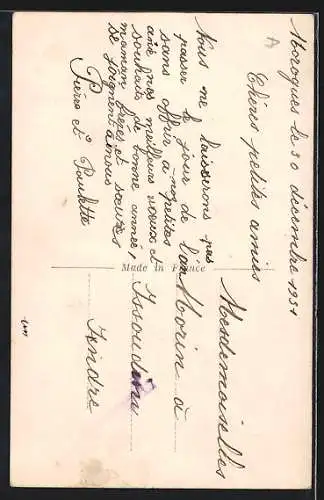 Morogues le 30 décembre 1931
Chères petites amies
Nous ne laisserons pas
passer le jour de l'an
sans offrir a nos petites
amie nos meilleurs voeux et
souhaits de bonne année,
maman frères et soeurs
se joignent a nous
Pierre et Paulette
Made in France
Mesdemoiselles
Morin à
Issoudun
Indre